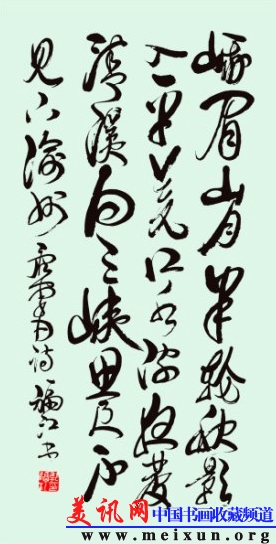 峨眉山月半轮秋影
入平羌江水流夜發
清溪向三峡思君不
见下渝州 诗
美讯网 中国书画收藏频道
www.meixun.org